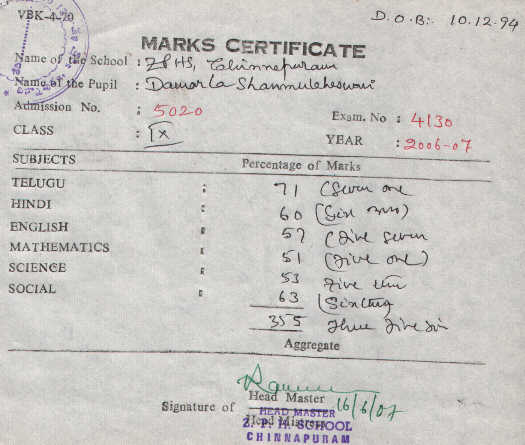 VBK-4-20
D.O.B:. 10.12.94
MARKS CERTIFICATE
Name of the School : ZPHS, Chinnapuram
Name of the Pupil : Damarla Shanmukheswari
Admission No. : 5020
Exam. No : 4130
CLASS : IX
YEAR : 2006-07
SUBJECTS Percentage of Marks
TELUGU : 71 (Seven one
HINDI : 60 (Six
ENGLISH : 57 (five seven
MATHEMATICS : 51 (five one)
SCIENCE : 53 five
SOCIAL : 63 (Six three
355 three five
Aggregate
Signature of Head Master 16/6/07
Head Mistress
HEAD MASTER
Z. P. H. SCHOOL
CHINNAPURAM